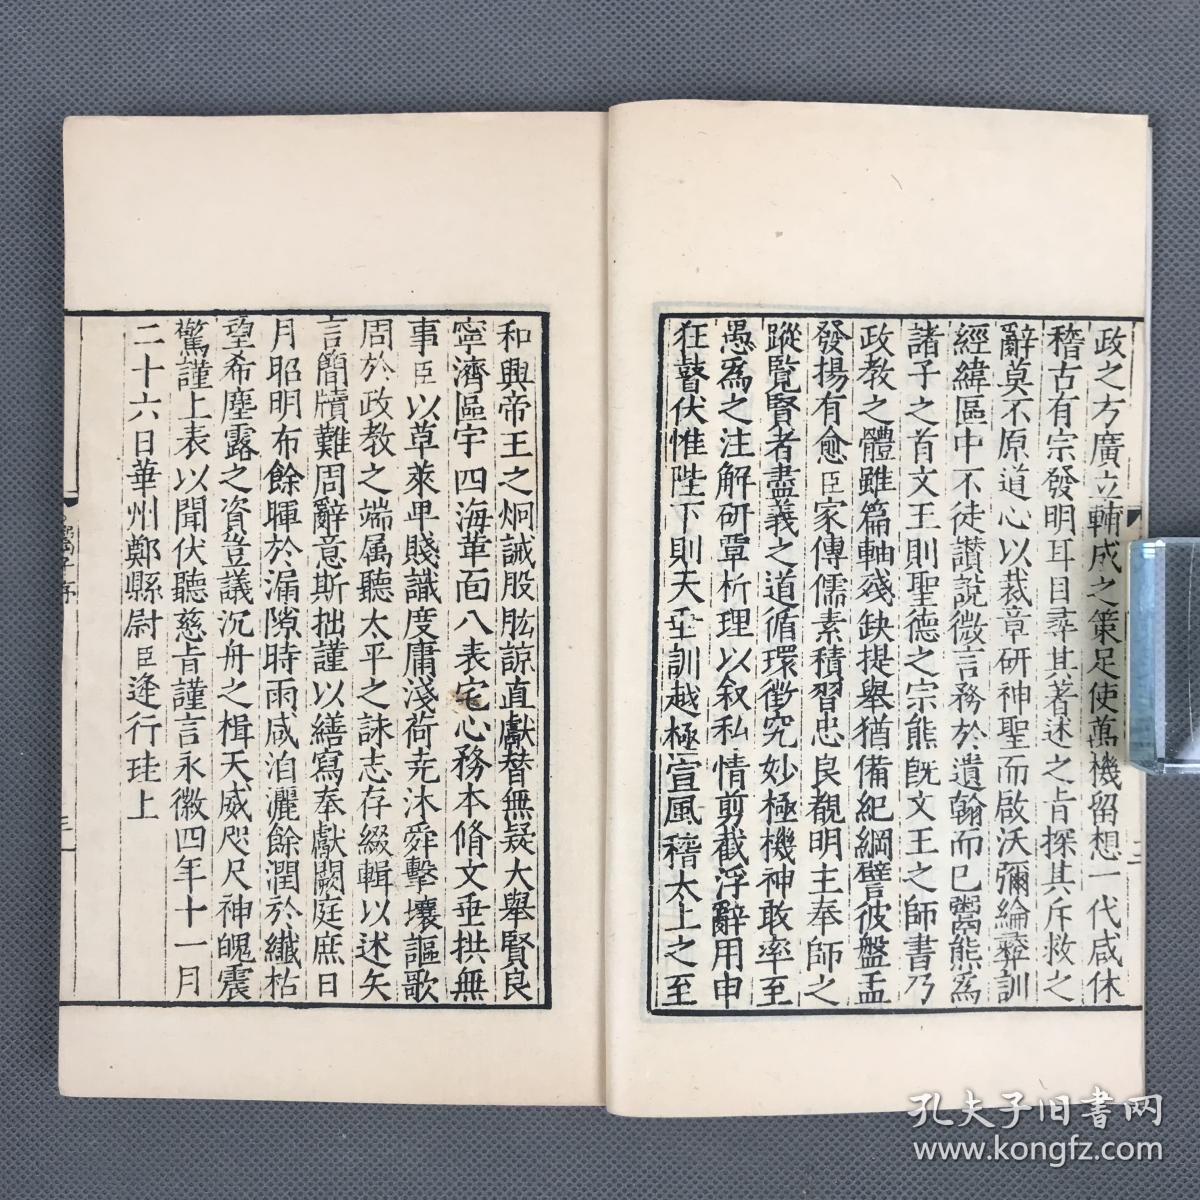 政之方廣立輔成之策足使萬機留想一代咸休
稽古有宗發明耳目尋其著述之旨探其斥救之
辭莫不原道心以裁章研神聖而啟沃彌綸彝訓
經緯區中不徒讃說微言務於遺翰而已鬻熊為
諸子之首文王則聖德之宗熊旣文王之師書乃
政教之體雖篇軸殘缺提舉猶備紀綱譬彼盤盂
發揚有愈臣家傳儒素積習忠良覩明主奉師之
蹤覽賢者盡義之道循環徴究妙極機神敢率至
愚為之注解研覃析理以叙私情剪截浮辭用申
狂瞽伏惟陛下則天垂訓越極宣風稽太上之至
和興帝王之炯誡股肱諒直獻替無疑大舉賢良
寧濟區宇四海革面八表宅心務本脩文垂拱無
事臣以草萊卑賤識度庸淺荷堯沐舜擊壤謳歌
周於政教之端属聽太平之詠志存綴輯以述矢
言簡牘難周辭意斯拙謹以繕寫奉獻闕庭庶日
月昭明布餘暉於漏隙時雨咸泊灑餘潤於纖枯
望希塵露之資豈議沉舟之楫天威咫尺神魄震
驚謹上表以聞伏聽慈旨謹言永徽四年十一月
二十六日華州鄭縣尉臣逄行珪上
鬻子序
三
孔夫子旧書网
www.kongfz.com